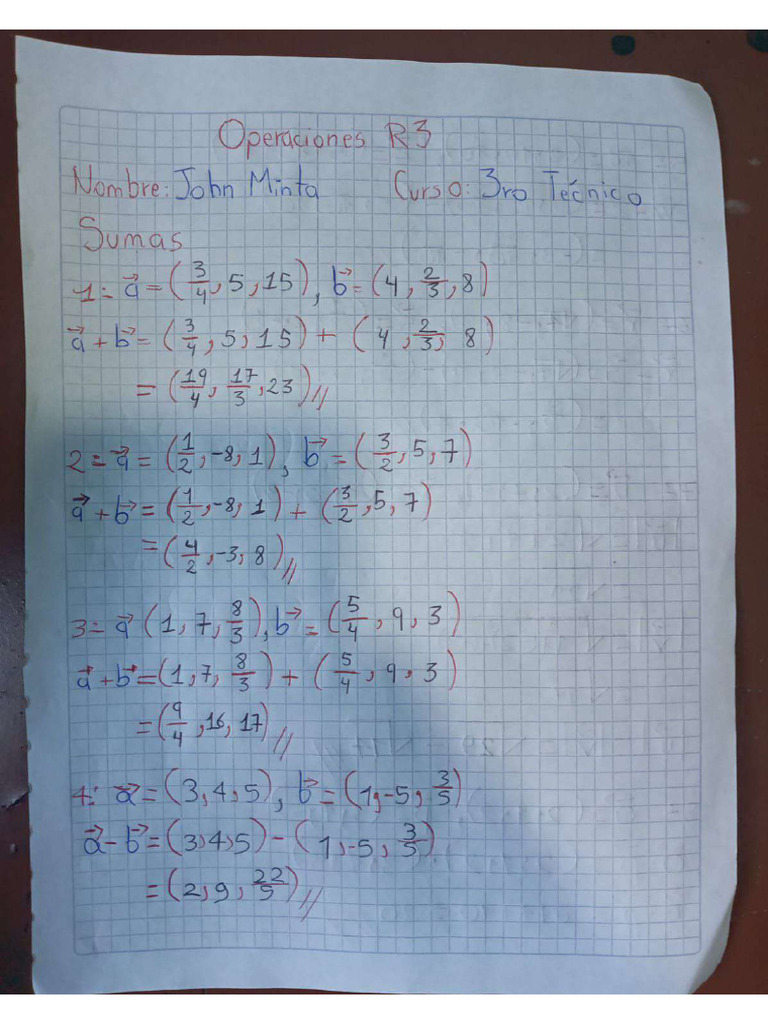 Operaciones R3
Nombre: John Minta Curso: 3ro Técnico
Sumas
1= a⃗ = (3/4, 5, 15), b⃗ = (4, 2/3, 8)
a⃗ + b⃗ = (3/4, 5, 15) + (4, 2/3, 8)
= (19/4, 17/3, 23)//
2= a⃗ = (1/2, -8, 1), b⃗ = (3/2, 5, 7)
a⃗ + b⃗ = (1/2, -8, 1) + (3/2, 5, 7)
= (4/2, -3, 8)//
3= a⃗ (1, 7, 8/3), b⃗ = (5/4, 9, 3)
a⃗ + b⃗ = (1, 7, 8/3) + (5/4, 9, 3)
= (9/4, 16, 17)//
4= a⃗ = (3, 4, 5), b⃗ = (1, -5, 3/5)
a⃗ - b⃗ = (3, 4, 5) - (1, -5, 3/5)
= (2, 9, 22/5)//